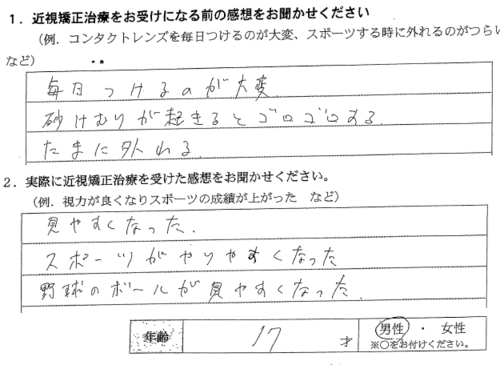 1．近視矯正治療をお受けになる前の感想をお聞かせください
（例．コンタクトレンズを毎日つけるのが大変、スポーツする時に外れるのがつらい
など）
毎日つけるのが大変.
砂けむりが起きるとゴロゴロする.
たまに外れる.
2．実際に近視矯正治療を受けた感想をお聞かせください。
（例．視力が良くなりスポーツの成績が上がった　など）
見やすくなった.
スポーツがやりやすくなった
野球のボールが見やすくなった.
年齢 17 才 男性 ・ 女性
※○をお付けください。